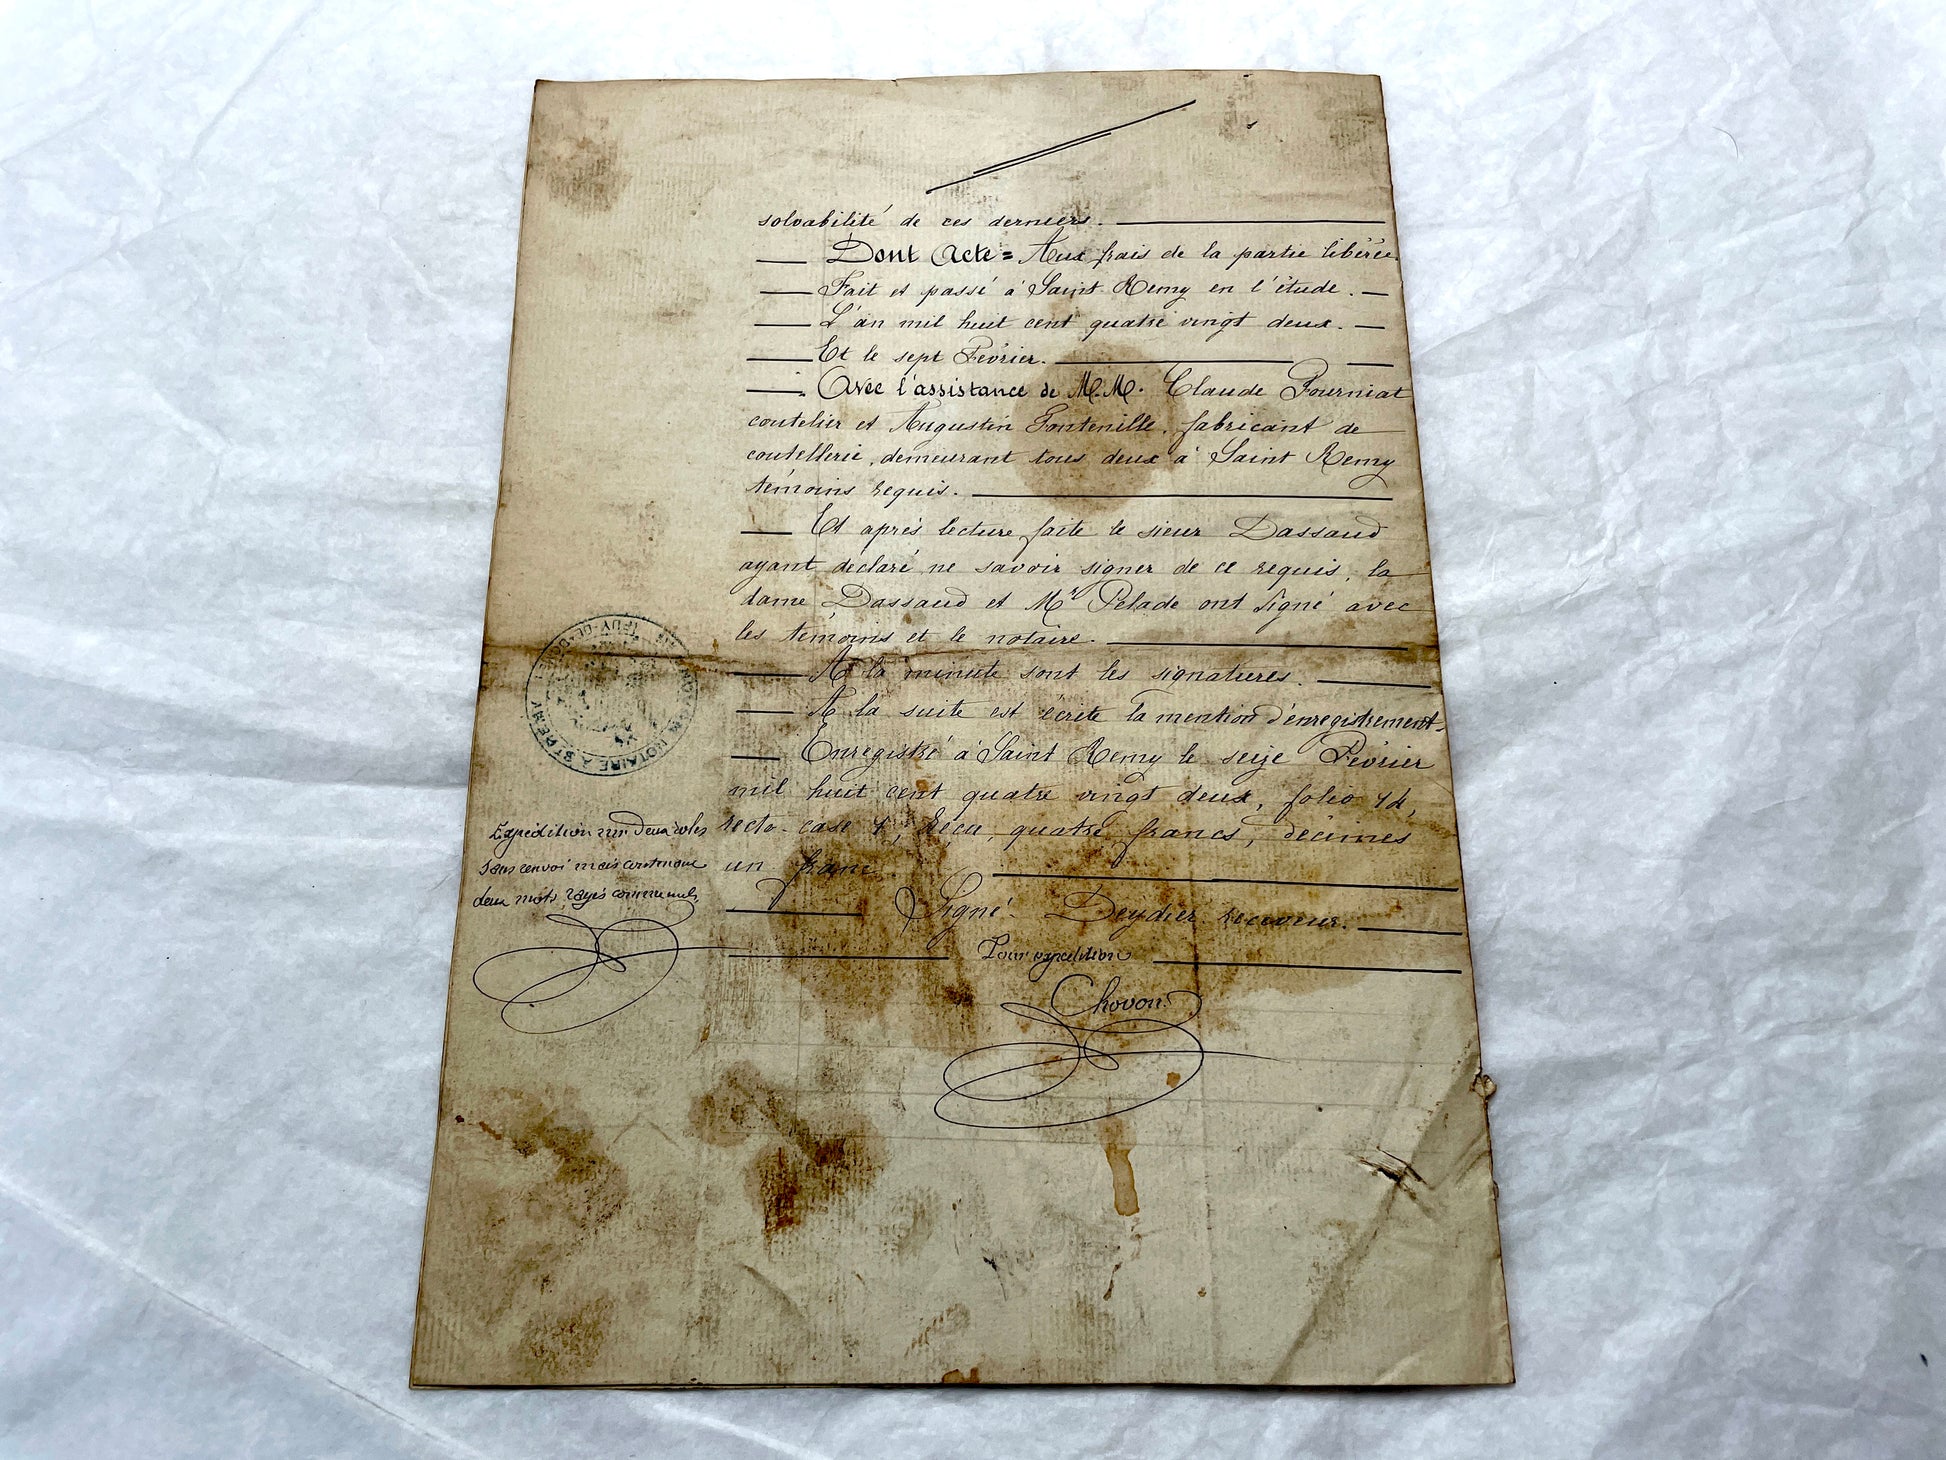 solvabilité de ces derniers.
Dont Acte = Aux frais de la partie libérée
Fait et passé à Saint Remy en l'étude.
L'an mil huit cent quatre vingt deux.
Et le sept Février.
Avec l'assistance de M.M. Claude Fourniat
coutelier et Augustin Fontenille, fabricant de
coutellerie, demeurant tous deux à Saint Remy
témoins requis.
Et après lecture faite le sieur Dassaud
ayant déclaré ne savoir signer de ce requis, la
dame Dassaud et Mr Pelade ont signé avec
les témoins et le notaire.
A la minute sont les signatures.
A la suite est écrite la mention d'enregistrement
Enregistré à Saint Remy le seize Février
mil huit cent quatre vingt deux, folio
recto case Reçu, quatre francs, décimes
un franc
Signé Deydier receveur.
Pour expédition
Chovon
Expédition sur deux roles
sans renvoi mais contenant
deux mots rayés comme nuls
NOTAIRE A ST REMY
PUY-DE-DOME